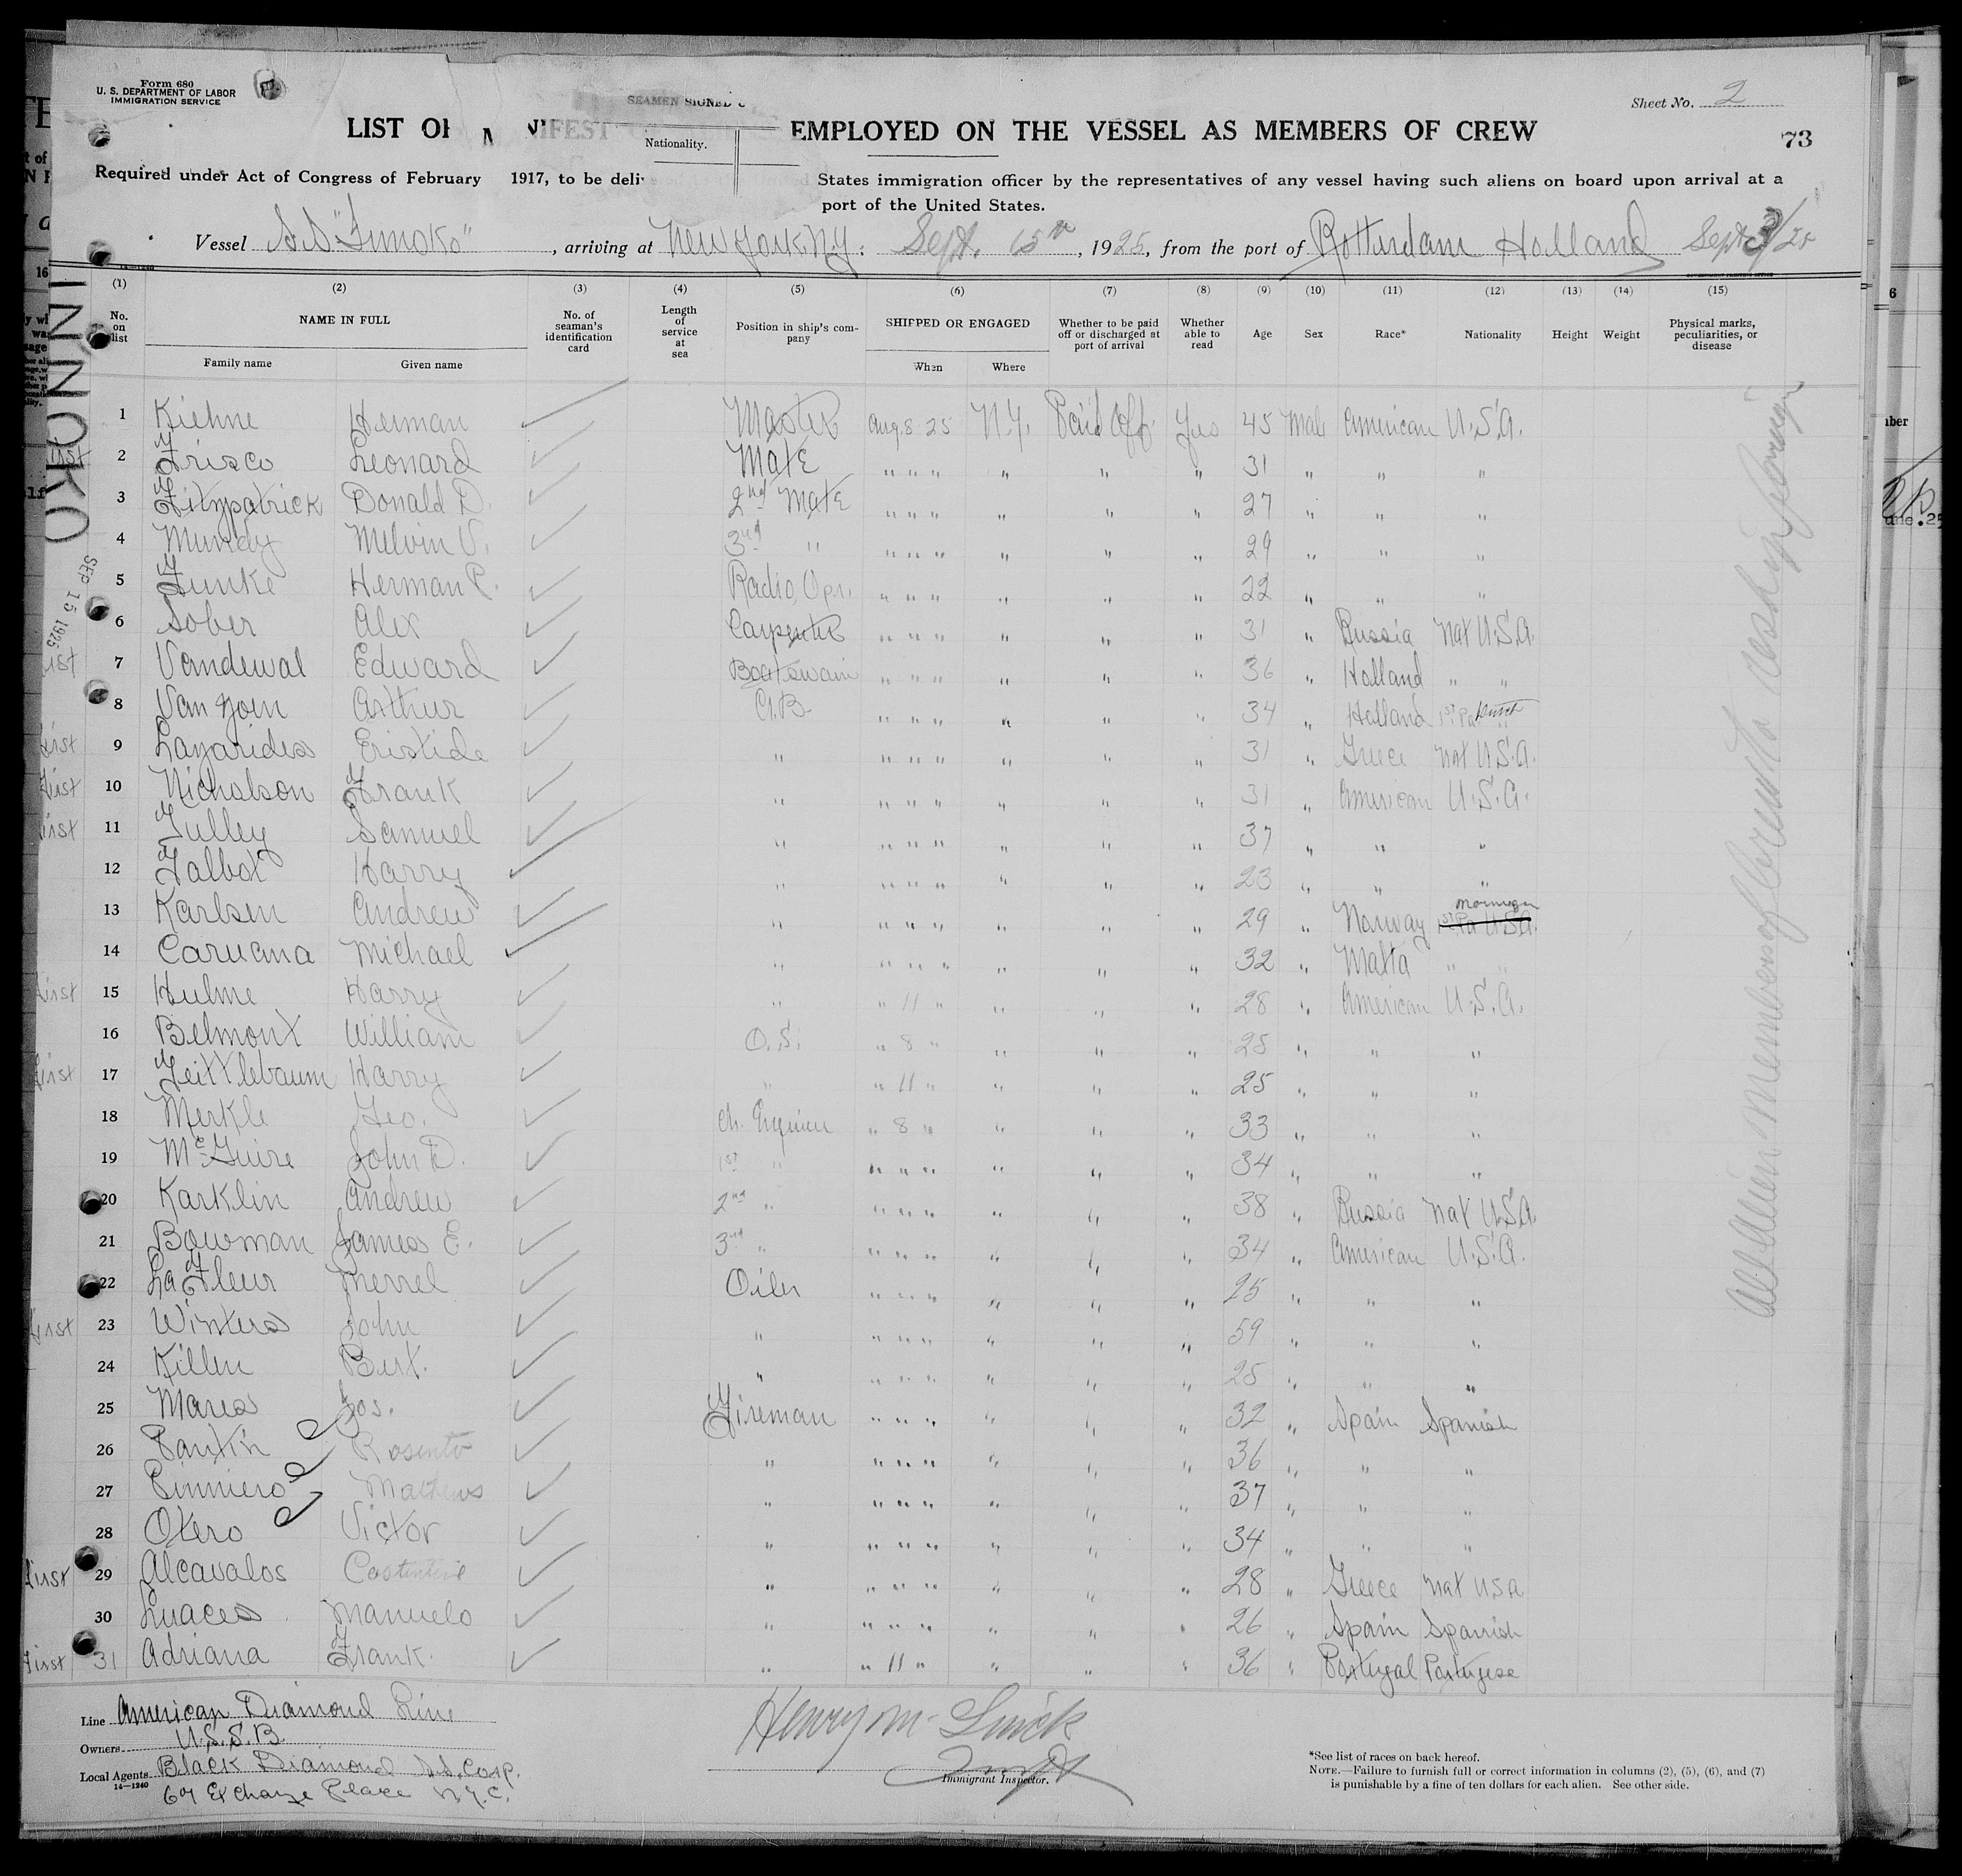 Form 680
U. S. DEPARTMENT OF LABOR
IMMIGRATION SERVICE
SEAMEN SIGNED
Sheet No. 2
LIST OF EMPLOYED ON THE VESSEL AS MEMBERS OF CREW
Nationality.
73
Required under Act of Congress of February 1917, to be deli States immigration officer by the representatives of any vessel having such aliens on board upon arrival at a
port of the United States.
Vessel S.S. "Innoko", arriving at New York, N.Y.: Sept. 15th, 1925, from the port of Rotterdam Holland Sept 3/25
INNOKO
SEP 15 1925
(1) (2) (3) (4) (5) (6) (7) (8) (9) (10) (11) (12) (13) (14) (15)
No. on list NAME IN FULL Family name Given name No. of seaman's identification card Length of service at sea Position in ship's company SHIPPED OR ENGAGED When Where Whether to be paid off or discharged at port of arrival Whether able to read Age Sex Race* Nationality Height Weight Physical marks, peculiarities, or disease
1 Kiehne Herman Master Aug. 8 25 N.Y. Paid Off. Yes 45 Male American U.S.A.
First 2 Frisco Leonard Mate " " " " " " 31 " " "
3 Fitzpatrick Donald D. 2nd Mate " " " " " " 27 " " "
4 Mundy Melvin V. 3rd " " " " " " " 29 " " "
5 Funke Herman P. Radio Opr. " " " " " " 22 " " "
6 Sober Alex Carpenter " " " " " " 31 " Russia Nat U.S.A.
First 7 Vandewal Edward Boatswain " " " " " " 36 " Holland " "
8 Van Arthur A.B. " " " " " " 34 " Holland 1st Pa Dutch
First 9 Lazarides Eristide " " " " " " " 31 " Greece Nat U.S.A.
First 10 Nicholson Frank " " " " " " " 31 " American U.S.A.
First 11 Tulley Samuel " " " " " " " 37 " " "
12 Talbot Harry " " " " " " " 23 " " "
13 Karlsen Andrew " " " " " " " 29 " Norway 1st Pa U.S.A. Norwegian
14 Caruana Michael " " " " " " " 32 " Malta " "
First 15 Hulme Harry " " 11 " " " " 28 " American U.S.A.
16 Belmont William O.S. " 8 " " " " 25 " " "
First 17 Teittlebaum Harry " " 11 " " " " 25 " " "
18 Merkle Geo. Ch. Engineer " 8 " " " " 33 " " "
19 McGuire John D. 1st " " " " " " " " 34 " " "
20 Karklin Andrew 2nd " " " " " " " " 38 " Russia Nat U.S.A.
21 Bowman James E. 3rd " " " " " " " " 34 " American U.S.A.
22 La Fleur Merrel Oiler " " " " " " " 25 " " "
First 23 Winters John " " " " " " " " 59 " " "
24 Killen Burt. " " " " " " " " 25 " " "
25 Mares Jos. Fireman " " " " " " " 32 " Spain Spanish
26 Pantin Rosento " " " " " " " " 36 " " "
27 Pinniero Matheus " " " " " " " " 37 " " "
28 Otero Victor " " " " " " " " 34 " " "
First 29 Alcavalos Costentine " " " " " " " " 28 " Greece Nat USA
30 Luaces Manuelo " " " " " " " " 26 " Spain Spanish
First 31 Adriana Frank. " " 11 " " " " 36 " Portugal Portugese
All alien members of crew to reship foreign
Line American Diamond Line
Owners U.S.S.B.
Local Agents Black Diamond S.S. Corp.
14—1240
67 Exchange Place N.Y.C.
Henry M.
Immigrant Inspector.
*See list of races on back hereof.
NOTE.—Failure to furnish full or correct information in columns (2), (5), (6), and (7)
is punishable by a fine of ten dollars for each alien. See other side.